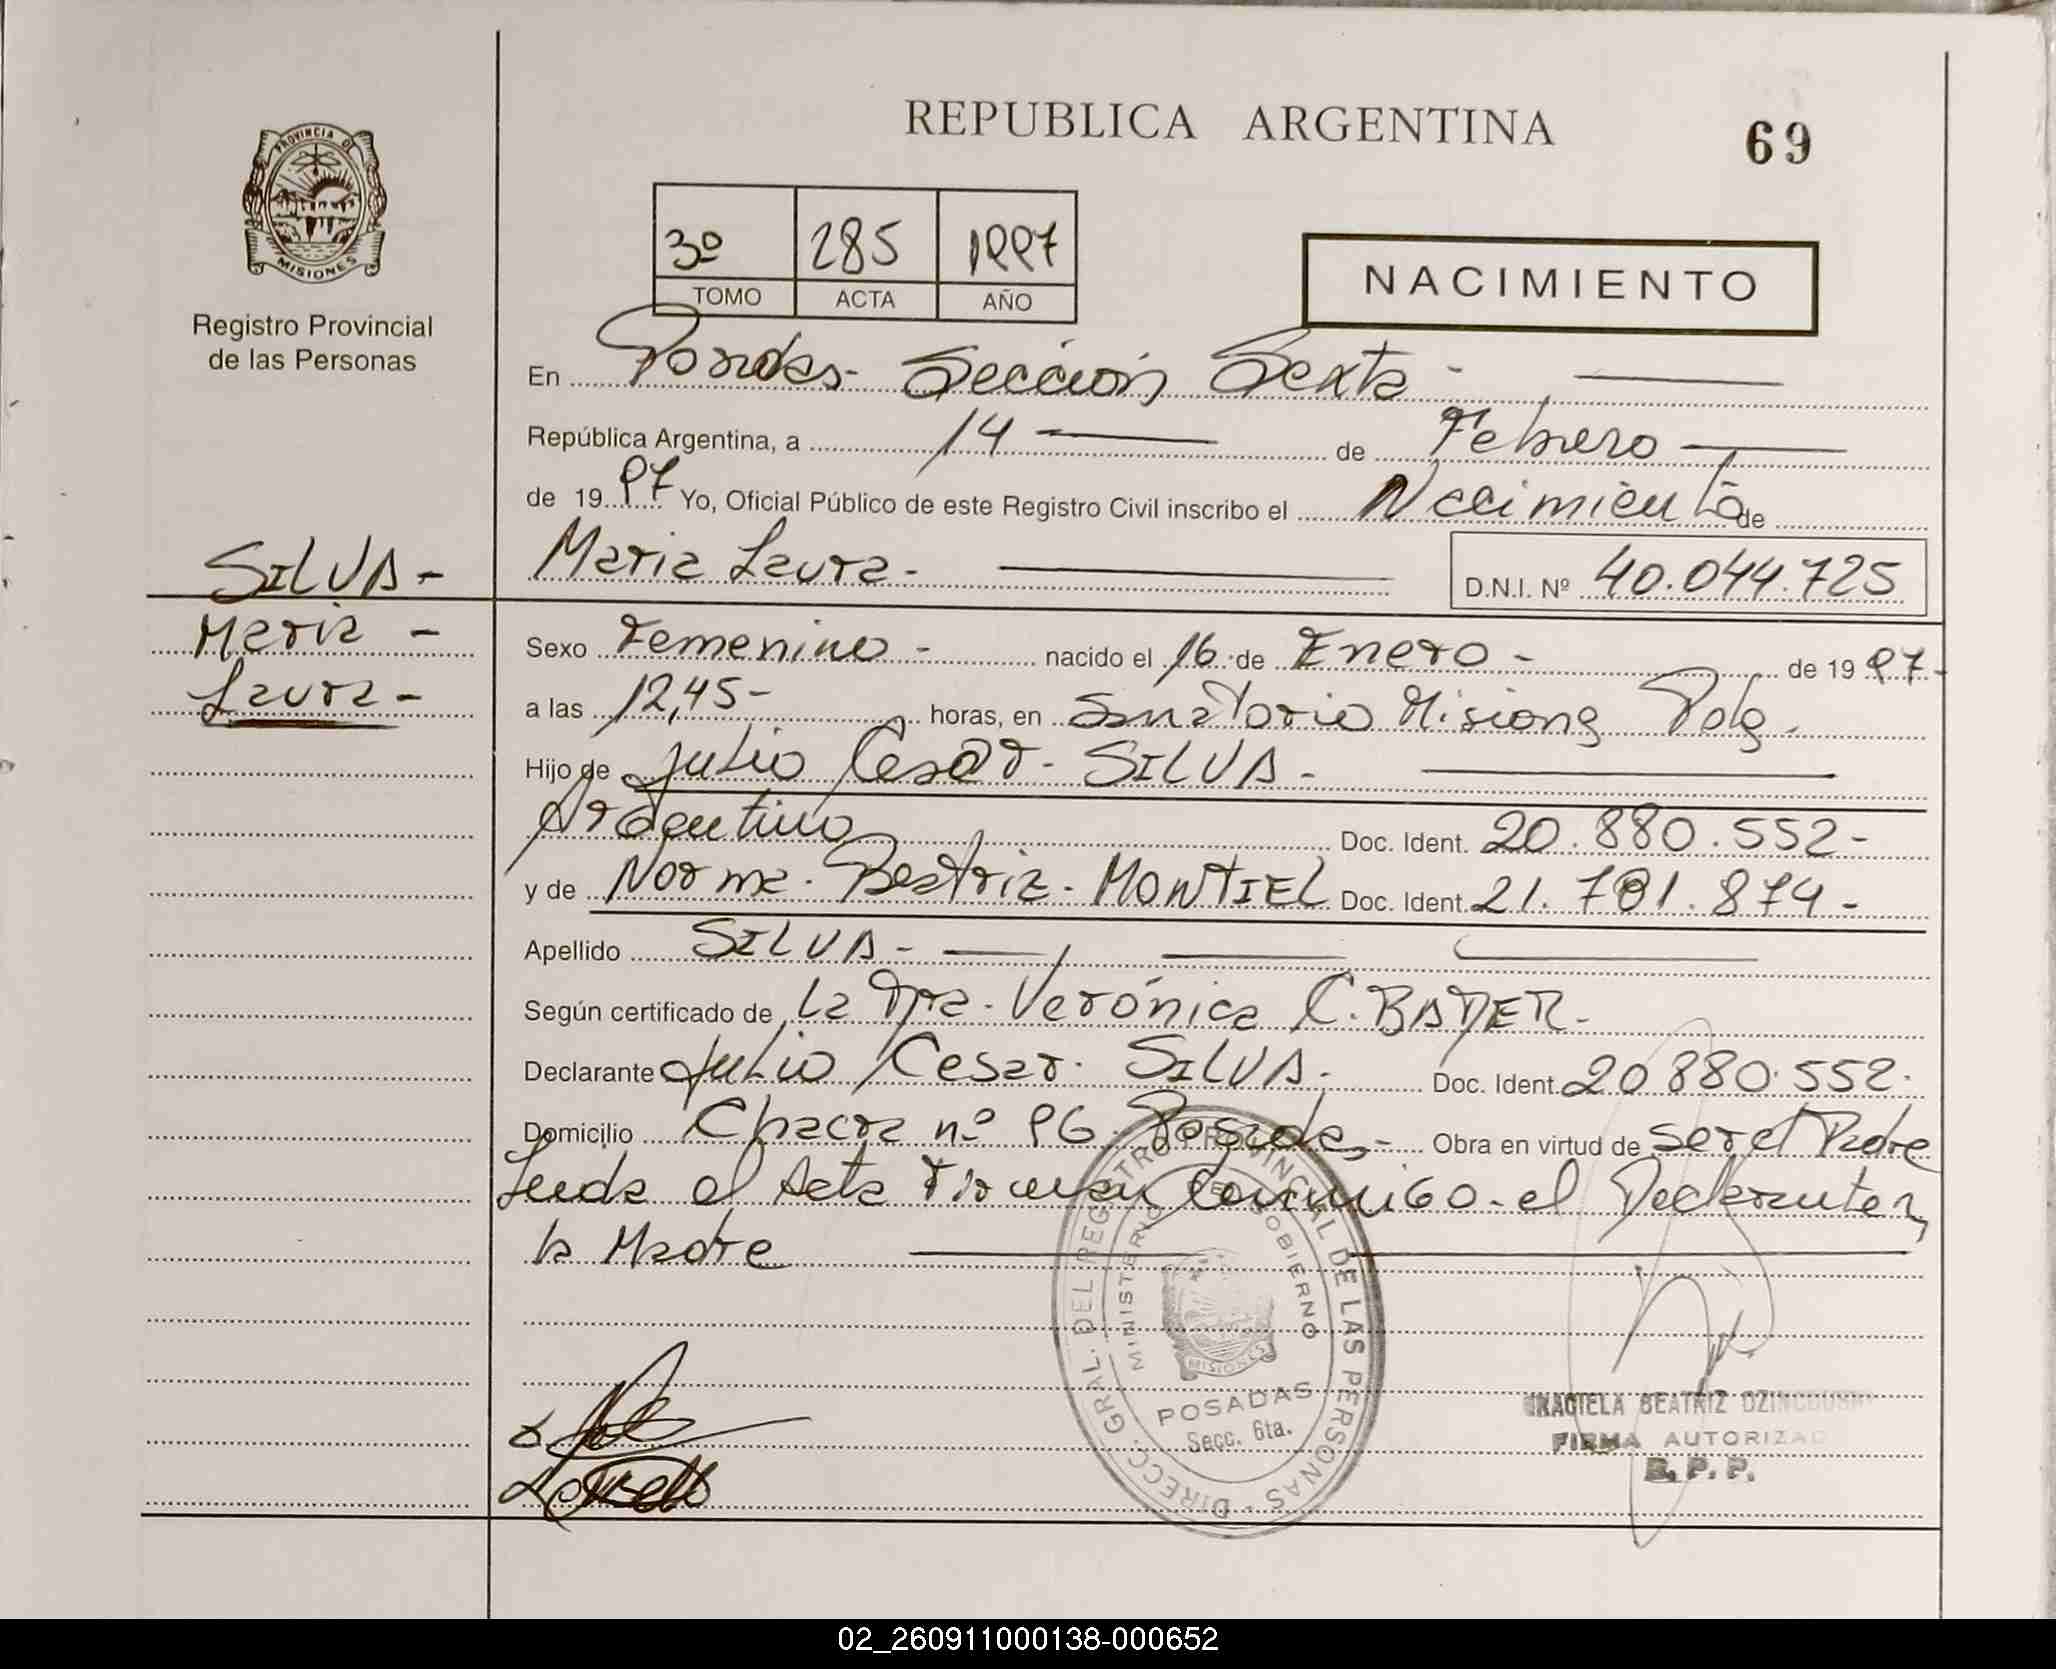 REPUBLICA ARGENTINA
69
PROVINCIA D
MISIONES
Registro Provincial
de las Personas
3º 285 1997
TOMO ACTA AÑO
NACIMIENTO
En Posadas- Sección Sexta -
República Argentina, a 14 de Febrero
de 1997 Yo, Oficial Público de este Registro Civil inscribo el Nacimiento de
Maria Laura- D.N.I. Nº 40.044.725
SILVA-
Maria -
Laura-
Sexo Femenino - nacido el 16 de Enero - de 1997-
a las 12,45- horas, en Sanatorio Misiones Pdas.
Hijo de Julio Cesar- SILVA-
Argentino Doc. Ident. 20.880.552-
y de Norma- Beatriz- MONTIEL Doc. Ident. 21.781.874-
Apellido SILVA-
Según certificado de La Dra- Verónica C. BADER-
Declarante Julio Cesar- SILVA- Doc. Ident. 20.880.552-
Domicilio Chacra nº 96 Posadas- Obra en virtud de ser el Padre
Leida el Acta Firman Conmigo-el Declarante y
la Madre
DIRECC. GRAL. DEL REGISTRO PROVINCIAL DE LAS PERSONAS -
MINISTERIO DE GOBIERNO
MISIONES
POSADAS
Secc. 6ta.
GRACIELA BEATRIZ
FIRMA AUTORIZAD
R. P. P.
02_260911000138-000652